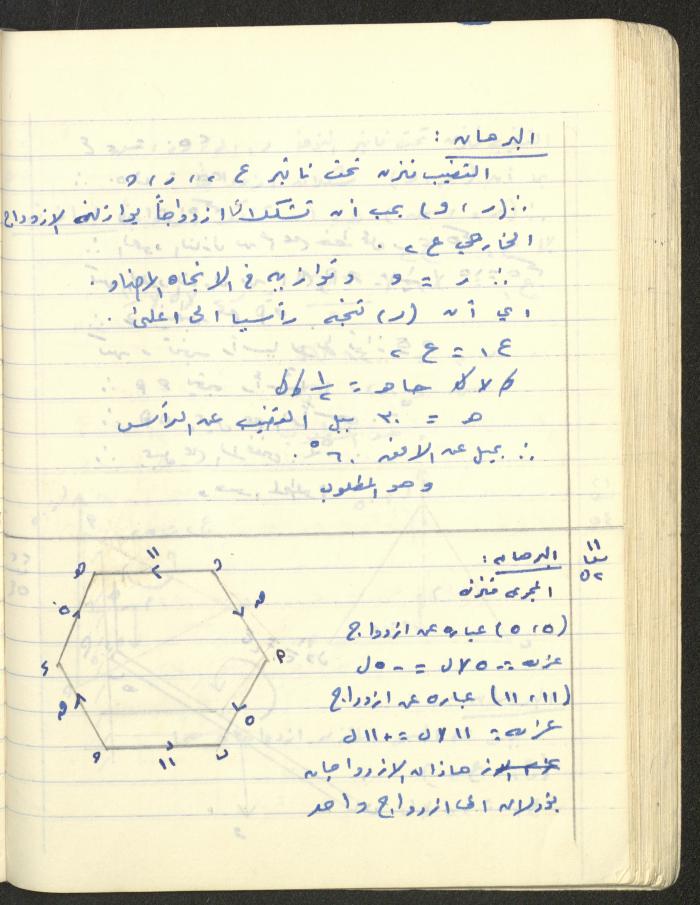 البرهان :
القضيب متزن تحت تأثير ع ٢ ، ر ، و
∴ (ر ، و) يجب أن تشكلان ازدواجاً يوازن الازدواج
الخارجي ع ٢ .
∴ ر = و وتوازيه في الاتجاه
اي أن (ر) تتجه رأسيا الى اعلى .
ع ١ = ع ٢
جا هـ = ١/٢
هـ = ٣٠ ميل القضيب عن الرأسي
∴ يميل عن الافق ٦٠°
وهو المطلوب
١١
٥٢
البرهان :
المجموعة متزنة
(٥ ، ٥) عبارة عن ازدواج
عزمه = - ٥ × ل = - ٥ ل
(١١ ، ١١) عبارة عن ازدواج
عزمه = ١١ × ل = + ١١ ل
هاذان الازدواجان
يؤولان الى ازدواج واحد
١١
٥
٥
١١